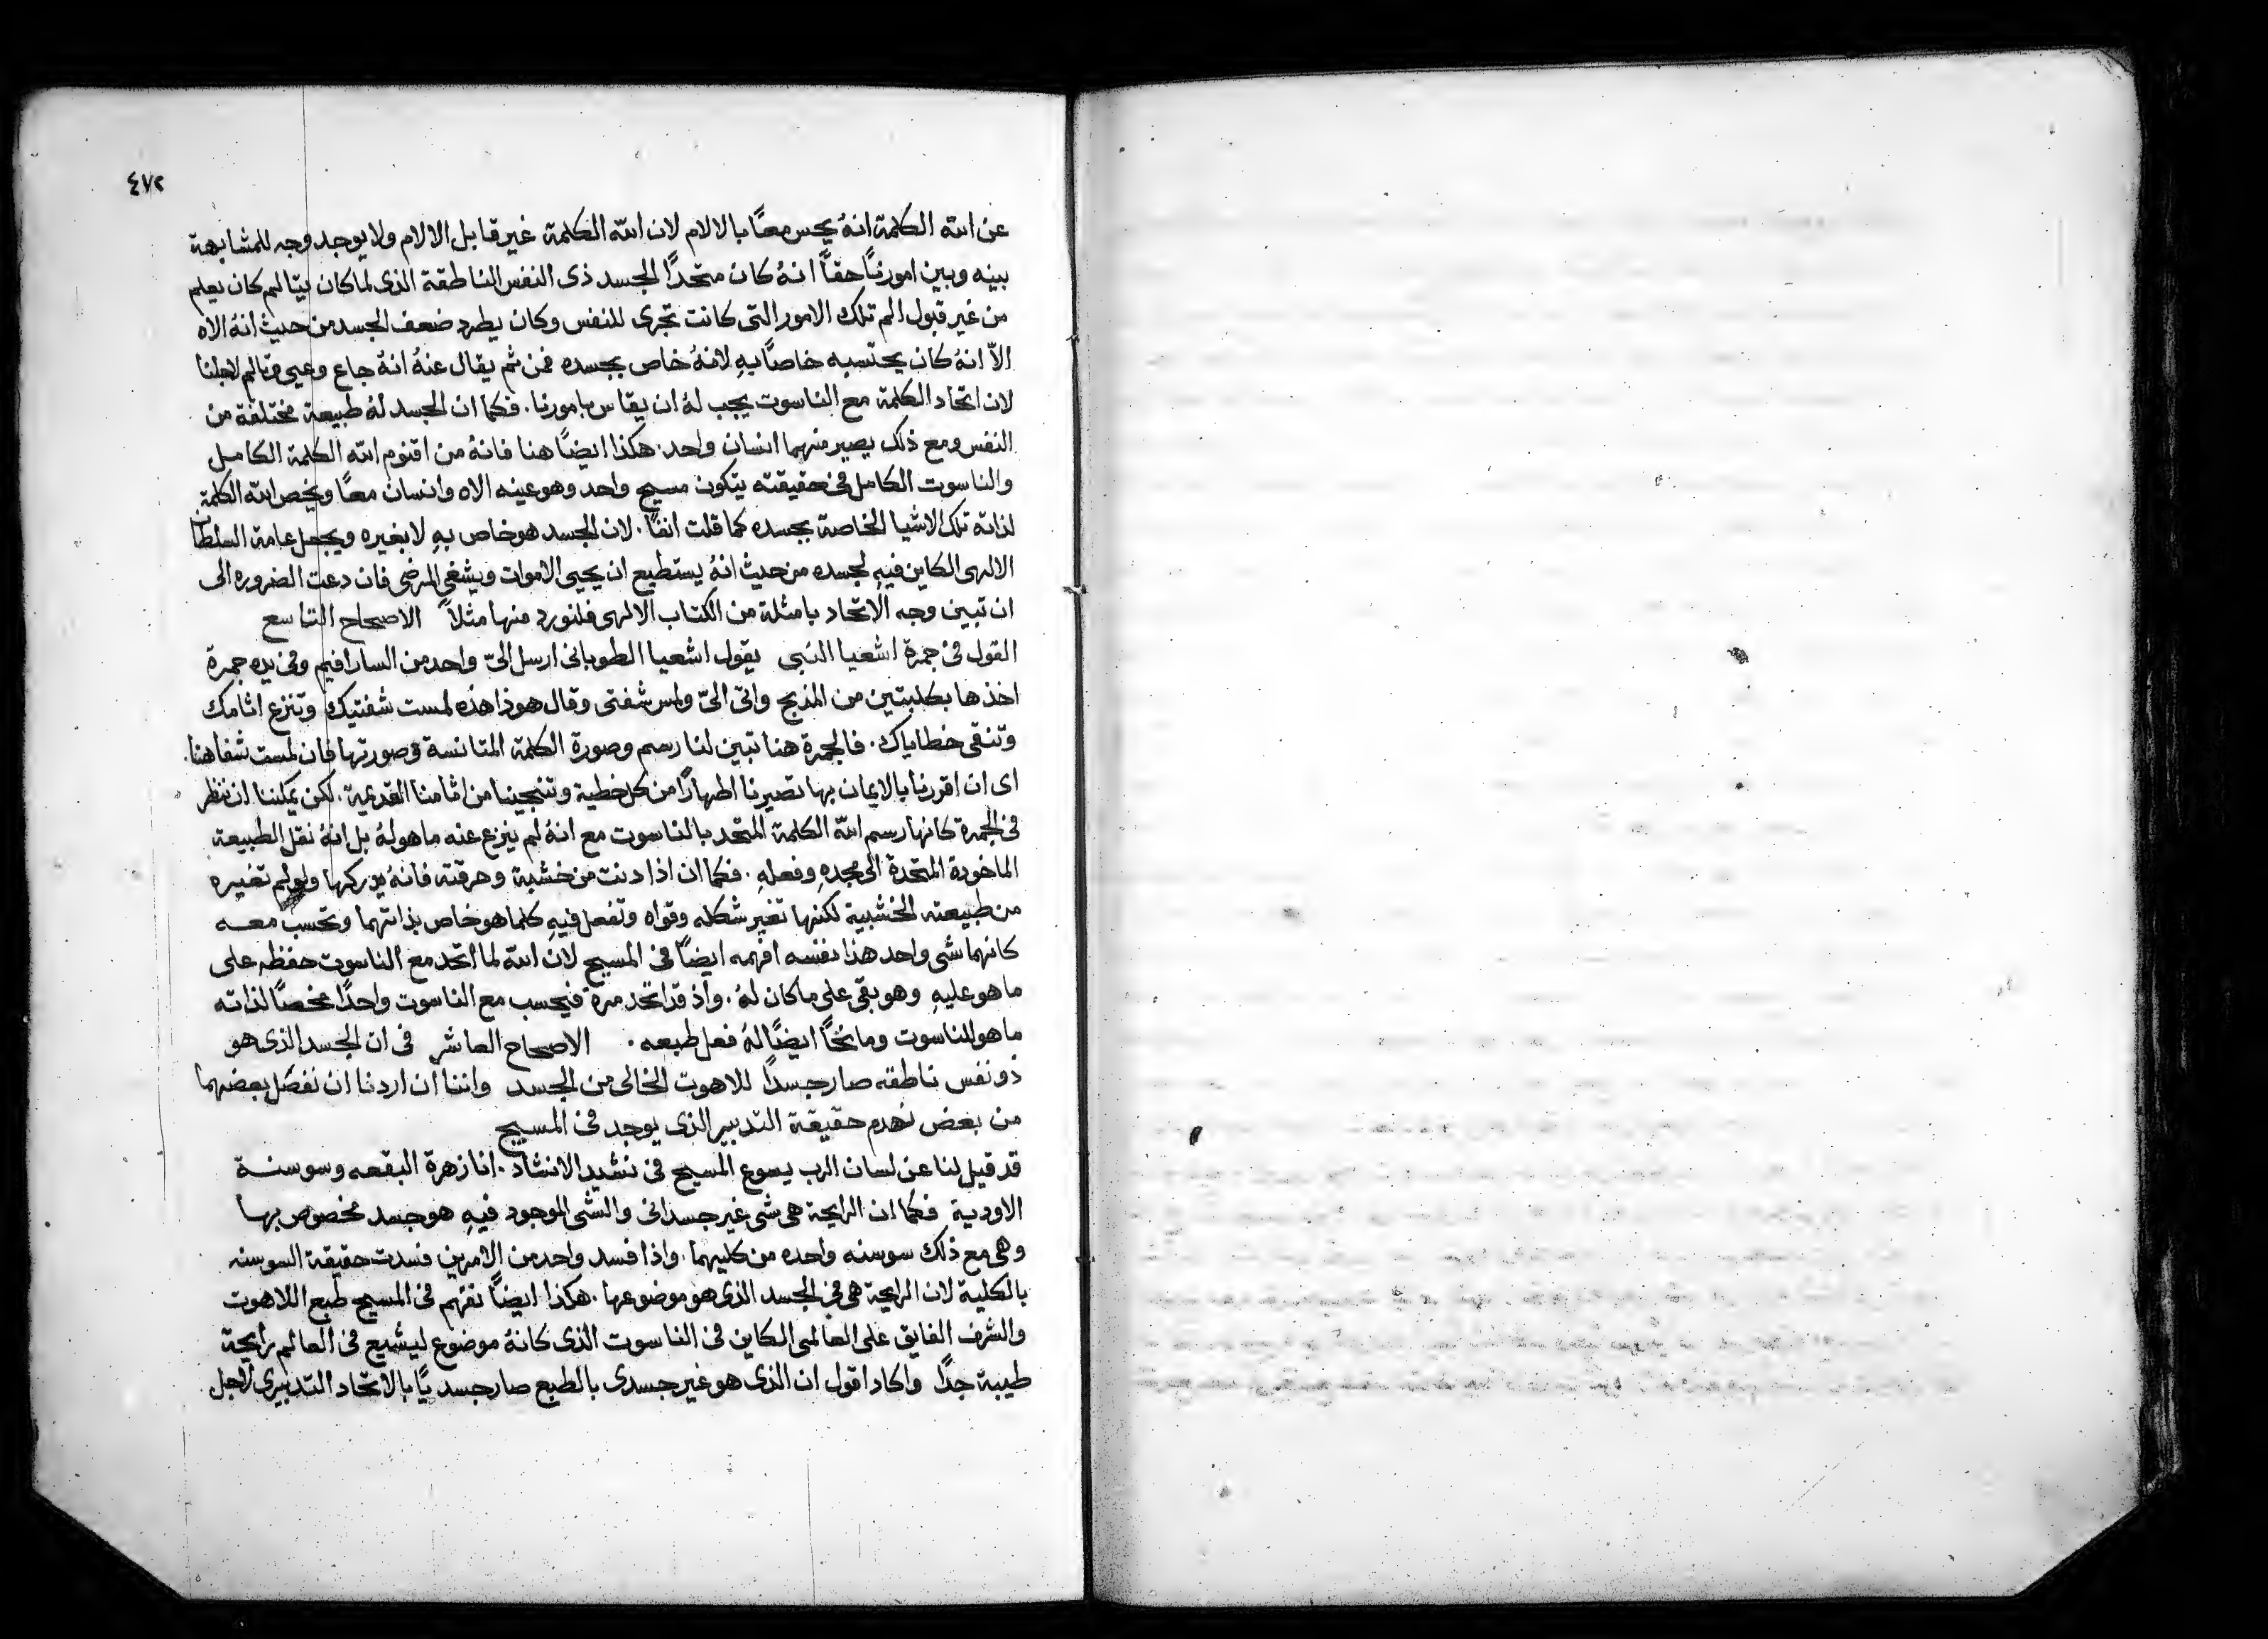 ٤٧٢
عن الله الكلمة انهُ يحس معًا بالالام لان الله الكلمة غير قابل الالام ولا يوجد وجه للمشابهة
بينه وبين امورنا حقًا انهُ كان متحدًا الجسد ذى النفس الناطقة الذى لما كان يتالم كان يعلم
من غير قبول الم تلك الامور التى كانت تجرى للنفس وكان يطرد ضعف الجسد من حيث انهُ الاه
الاّ انهُ كان يحتسبه خاصًا بهِ لانهُ خاص بجسده فمن ثم يقال عنهُ انهُ جاع وعيى وتالم لاجلنا
لان اتحاد الكلمة مع الناسوت يجب لهُ ان يقاس بامورنا. فكما ان الجسد لهُ طبيعة مختلفة من
النفس ومع ذلك يصير منهما انسان واحد. هكذا ايضًا هنا فانهُ من اقنوم الله الكلمة الكامل
والناسوت الكامل فى حقيقته يتكون مسيح واحد وهو عينه الاه وانسان معًا ويخص الله الكلمة
لذاته تلك الاشيا الخاصة بجسده كما قلت انفًا. لان الجسد هو خاص بهِ لا بغيره ويجعل عامة السلطان
الالهى الكاين فيهِ لجسده من حيث انهُ يستطيع ان يحيى الاموات ويشفى المرضى فان دعت الضروره الى
ان تبين وجه الاتحاد بامثلة من الكتاب الالهى فلنورد منها مثلاً الاصحاح التاسع
القول فى جمرة اشعيا النبى يقول اشعيا الطوبانى ارسل الىّ واحد من السارافيم وفى يده جمرة
اخذها بكلبتين من المذبح واتى الىّ ولمس شفتى وقال هوذا هذه لمست شفتيك وتنزع اثامك
وتنقى خطاياك. فالجمرة هنا تبين لنا رسم وصورة الكلمة المتانسة وصورتها فان لمست شفاهنا.
اى ان اقررنا بالايمان بها تصيرنا اطهارًا من كل خطية وتنجينا من اثامنا القديمة. لكن يمكننا ان ننظر
فى الجمرة كانها رسم الله الكلمة المتحد بالناسوت مع انهُ لم ينزع عنه ما هو لهُ بل انهُ نقل الطبيعة
الماخوذة المتحدة الى مجدهِ وفعلهِ. فكما ان اذا دنت من خشبة وحرقته فانهُ يدركها ولو لم تغيره
من طبيعته الخشبية لكنها تغير شكله وقواه وتفعل فيهِ كلما هو خاص بذاتهما وتحسب معه
كانهما شى واحد هذا نفسه افهمه ايضًا فى المسيح لان الله لما اتحد مع الناسوت حفظه على
ما هو عليهِ وهو بقى على ما كان لهُ. واذ قد اتحد مرة فيحسب مع الناسوت واحدًا مخصًا لذاته
ما هو للناسوت ومانحًا ايضًا لهُ فعل طبعه. الاصحاح العاشر فى ان الجسد الذى هو
ذو نفس ناطقه صار جسدًا للاهوت الخالى من الجسد واننا ان اردنا ان نفصل بعضهما
من بعض نهدم حقيقة التدبير الذى يوجد فى المسيح
قد قيل لنا عن لسان الرب يسوع المسيح فى نشيد الانشاد. انا زهرة البقعه وسوسنة
الاودية فكما ان الرايحة هى شى غير جسدانى والشى الموجود فيهِ هو جسد مخصوص بها
وهى مع ذلك سوسنه واحده من كليهما. واذا فسد واحد من الامرين فسدت حقيقة السوسنه
بالكلية لان الرايحة هى فى الجسد الذى هو موضوعها. هكذا ايضًا نفهم فى المسيح طبع اللاهوت
والشرف الفايق على العالمى الكاين فى الناسوت الذى كانهُ موضوع ليشيع فى العالم رايحة
طيبة جدًا واكاد اقول ان الذى هو غير جسدى بالطبع صار جسديًا بالاتحاد التدبيرى لاجل